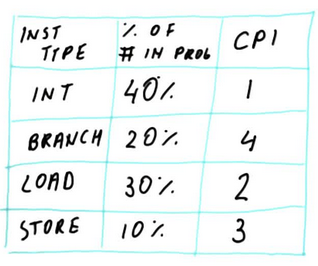 INST TYPE % OF # IN PROG CPI
INT 40% 1
BRANCH 20% 4
LOAD 30% 2
STORE 10% 3